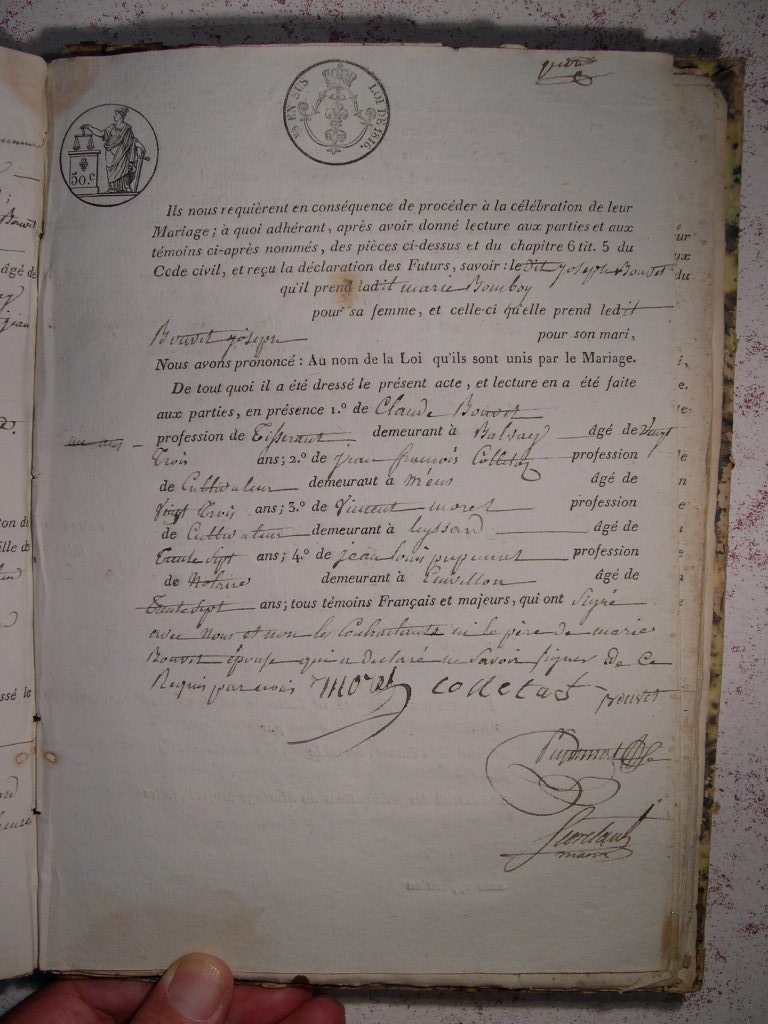 50.c
EN SUS
LOI DE 1816.
Ils nous requièrent en conséquence de procéder à la célébration de leur
Mariage; à quoi adhérant, après avoir donné lecture aux parties et aux
témoins ci-après nommés, des pièces ci-dessus et du chapitre 6 tit. 5 du
Code civil, et reçu la déclaration des Futurs, savoir: le dit joseph Bouvet
qu'il prend la dit marie Bomboy
pour sa femme, et celle-ci qu'elle prend ledit
Bouvet joseph pour son mari,
Nous avons prononcé: Au nom de la Loi qu'ils sont unis par le Mariage.
De tout quoi il a été dressé le présent acte, et lecture en a été faite
aux parties, en présence 1.º de Claude Bouvet
profession de Tisserant demeurant à âgé de Vingt
Trois ans; 2.º de jean francois profession
de Cultivateur demeuraut à âgé de
Vingt Trois ans; 3.º de Vincent morel profession
de Cultivateur demeurant à Leyssard âgé de
Trente Sept ans; 4.º de jean louis profession
de Notaire demeurant à âgé de
Trente Sept ans; tous témoins Français et majeurs, qui ont Signé
avec Nous et non les Contractants ni le père de marie
Bouvet épouse qui a declaré ne Savoir signer de Ce
Requis par nous morel colletast
maire